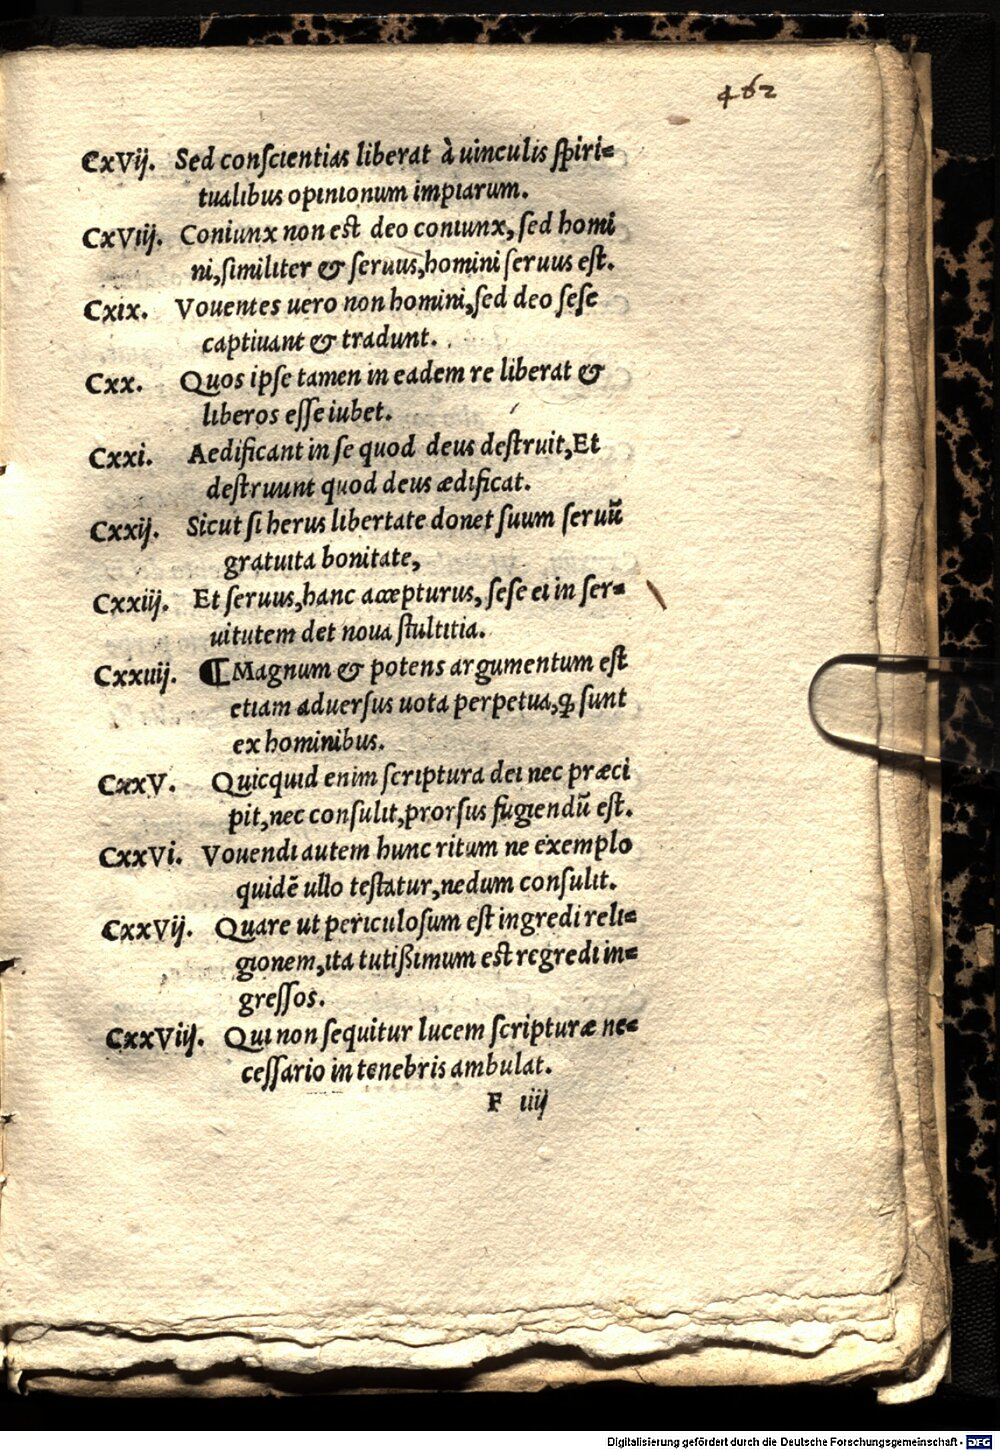 462
CxVij. Sed conscientias liberat à uinculis spiri=
tualibus opinionum impiarum.
CxViij. Coniunx non est deo coniunx, sed homi
ni, similiter & seruus, homini seruus est.
Cxix. Vouentes uero non homini, sed deo sese
captiuant & tradunt.
Cxx. Quos ipse tamen in eadem re liberat &
liberos esse iubet.
Cxxi. Aedificant in se quod deus destruit, Et
destruunt quod deus ædificat.
Cxxij. Sicut si herus libertate donet suum seruũ
gratuita bonitate,
Cxxiij. Et seruus, hanc accepturus, sese ei in ser=
uitutem det noua stultitia.
Cxxiiij. ¶ Magnum & potens argumentum est
etiam aduersus uota perpetua, ꝙ sunt
ex hominibus.
CxxV. Quicquid enim scriptura dei nec præci
pit, nec consulit, prorsus fugiendũ est.
CxxVi. Vouendi autem hunc ritum ne exemplo
quidẽ ullo testatur, nedum consulit.
CxxVij. Quare ut periculosum est ingredi reli=
gionem, ita tutißimum est regredi in=
gressos.
CxxViij. Qui non sequitur lucem scripturæ ne=
cessario in tenebris ambulat.
F iiij
Digitalisierung gefördert durch die Deutsche Forschungsgemeinschaft - DFG